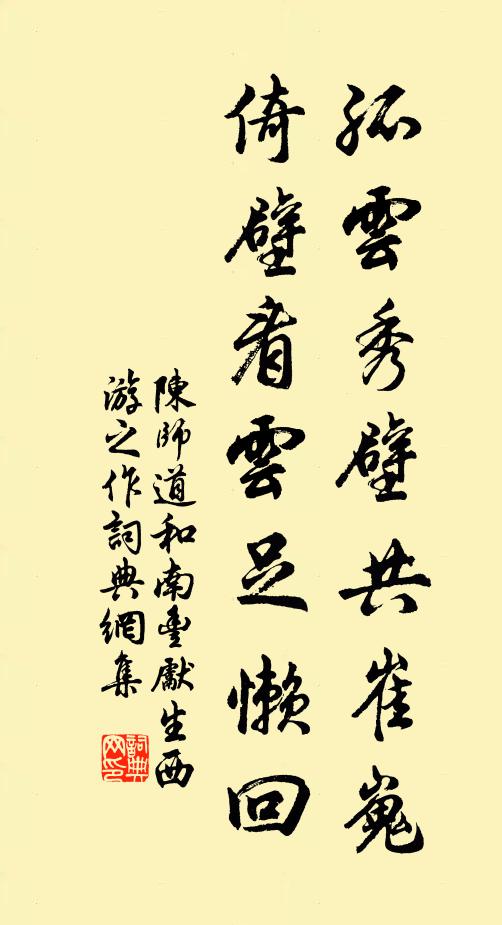 孤雲秀壁共崔嵬
倚壁看雲足懶回
陳師道和南豐獻生西
游之作詞典網集
詞典網印